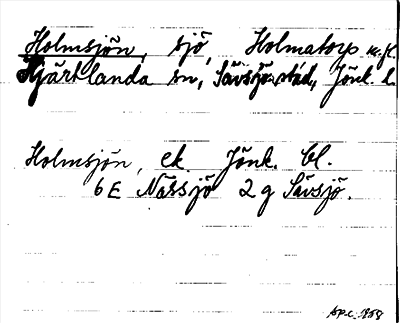 Holmsjön, sjö, Holmatorp m.fl.
Hjärtlanda sn, Sävsjö stad, Jönk. l.
Holmsjön, ek. Jönk. bl.
6 E Nässjö 2 g Sävsjö.